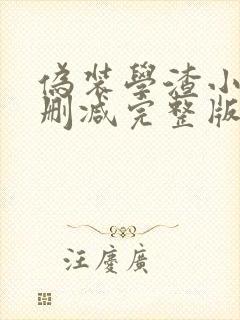 偽裝學渣小
刪減完整版
汪慶廣